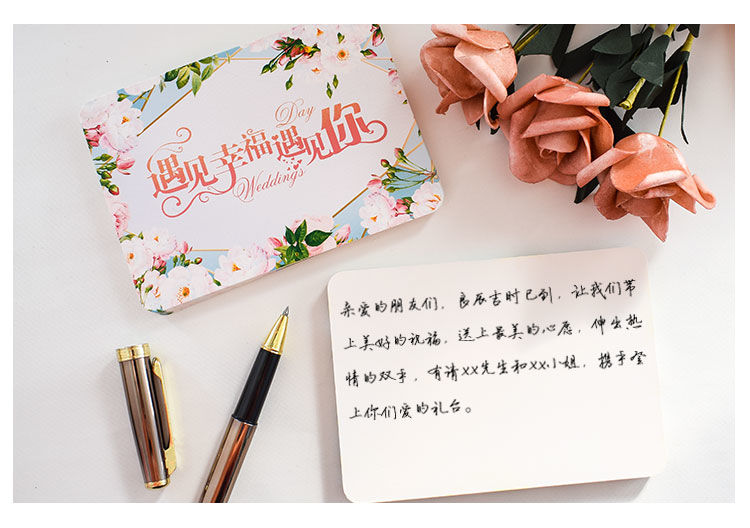 遇见幸福遇见你
Day
Weddings
亲爱的朋友们，良辰吉时已到，让我们带
上美好的祝福，送上最美的心愿，伸出热
情的双手，有请XX先生和XX小姐，携手登
上你们爱的礼台。